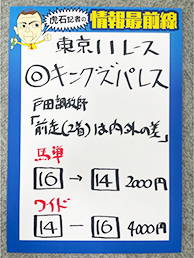 虎石記者の情報最前線
東京11レース
◎キングズパレス
戸田調教師
「前走(2着)は内外の差」
馬単
16→14 2000円
ワイド
14－16 4000円